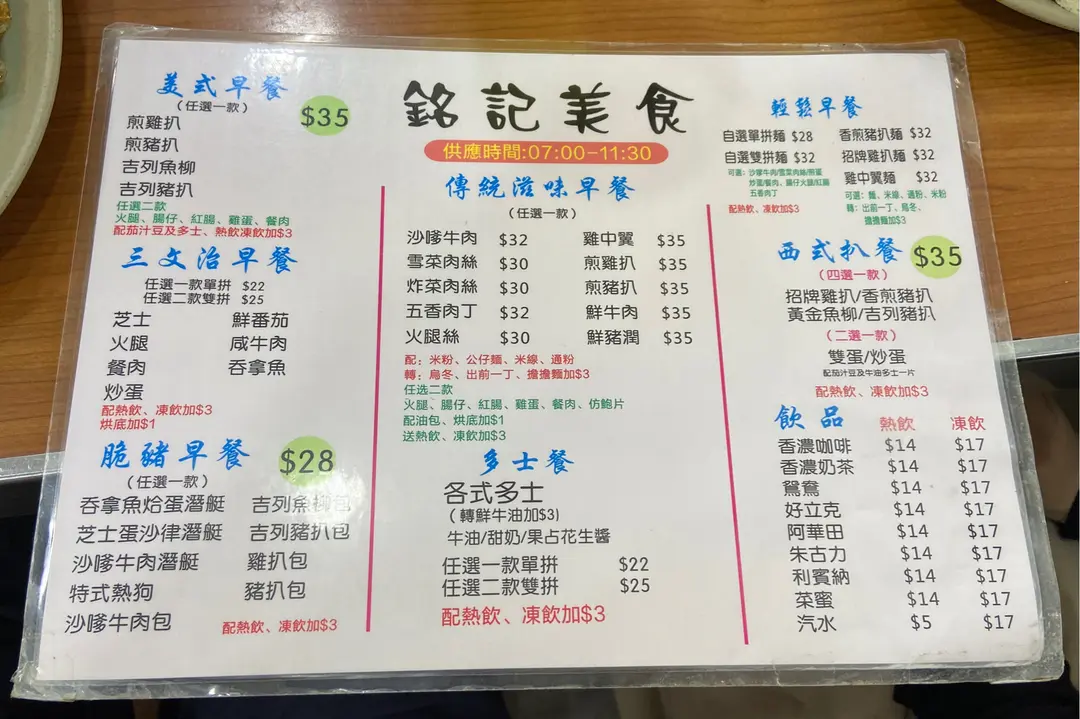 銘記美食
供應時間:07:00-11:30
美式早餐
(任選一款)
$35
煎雞扒
煎豬扒
吉列魚柳
吉列豬扒
任選二款
火腿、腸仔、紅腸、雞蛋、餐肉
配茄汁豆及多士、熱飲凍飲加$3
三文治早餐
任選一款單拼 $22
任選二款雙拼 $25
芝士 鮮番茄
火腿 咸牛肉
餐肉 吞拿魚
炒蛋
配熱飲、凍飲加$3
烘底加$1
脆豬早餐
$28
(任選一款)
吞拿魚烚蛋潛艇 吉列魚柳包
芝士蛋沙律潛艇 吉列豬扒包
沙嗲牛肉潛艇 雞扒包
特式熱狗 豬扒包
沙嗲牛肉包 配熱飲、凍飲加$3
傳統滋味早餐
(任選一款)
沙嗲牛肉 $32 雞中翼 $35
雪菜肉絲 $30 煎雞扒 $35
炸菜肉絲 $30 煎豬扒 $35
五香肉丁 $32 鮮牛肉 $35
火腿絲 $30 鮮豬潤 $35
配：米粉、公仔麵、米線、通粉
轉：烏冬、出前一丁、擔擔麵加$3
任选二款
火腿、腸仔、紅腸、雞蛋、餐肉、仿鮑片
配油包、烘底加$1
送熱飲、凍飲加$3
多士餐
各式多士
(轉鮮牛油加$3)
牛油/甜奶/果占花生醬
任選一款單拼 $22
任選二款雙拼 $25
配熱飲、凍飲加$3
輕鬆早餐
自選單拼麵 $28 香煎豬扒麵 $32
自選雙拼麵 $32 招牌雞扒麵 $32
可選：沙嗲牛肉/雪菜肉絲/煎蛋
炒蛋/餐肉、腸仔火腿/紅腸
五香肉丁
配熱飲、凍飲加$3
雞中翼麵 $32
可選：麵、米線、通粉、米粉
轉：出前一丁、烏冬、
擔擔麵加$3
西式扒餐
$35
(四選一款)
招牌雞扒/香煎豬扒
黃金魚柳/吉列豬扒
(二選一款)
雙蛋/炒蛋
配茄汁豆及牛油多士一片
配熱飲、凍飲加$3
飲品 熱飲 凍飲
香濃咖啡 $14 $17
香濃奶茶 $14 $17
鴛鴦 $14 $17
好立克 $14 $17
阿華田 $14 $17
朱古力 $14 $17
利賓納 $14 $17
菜蜜 $14 $17
汽水 $5 $17